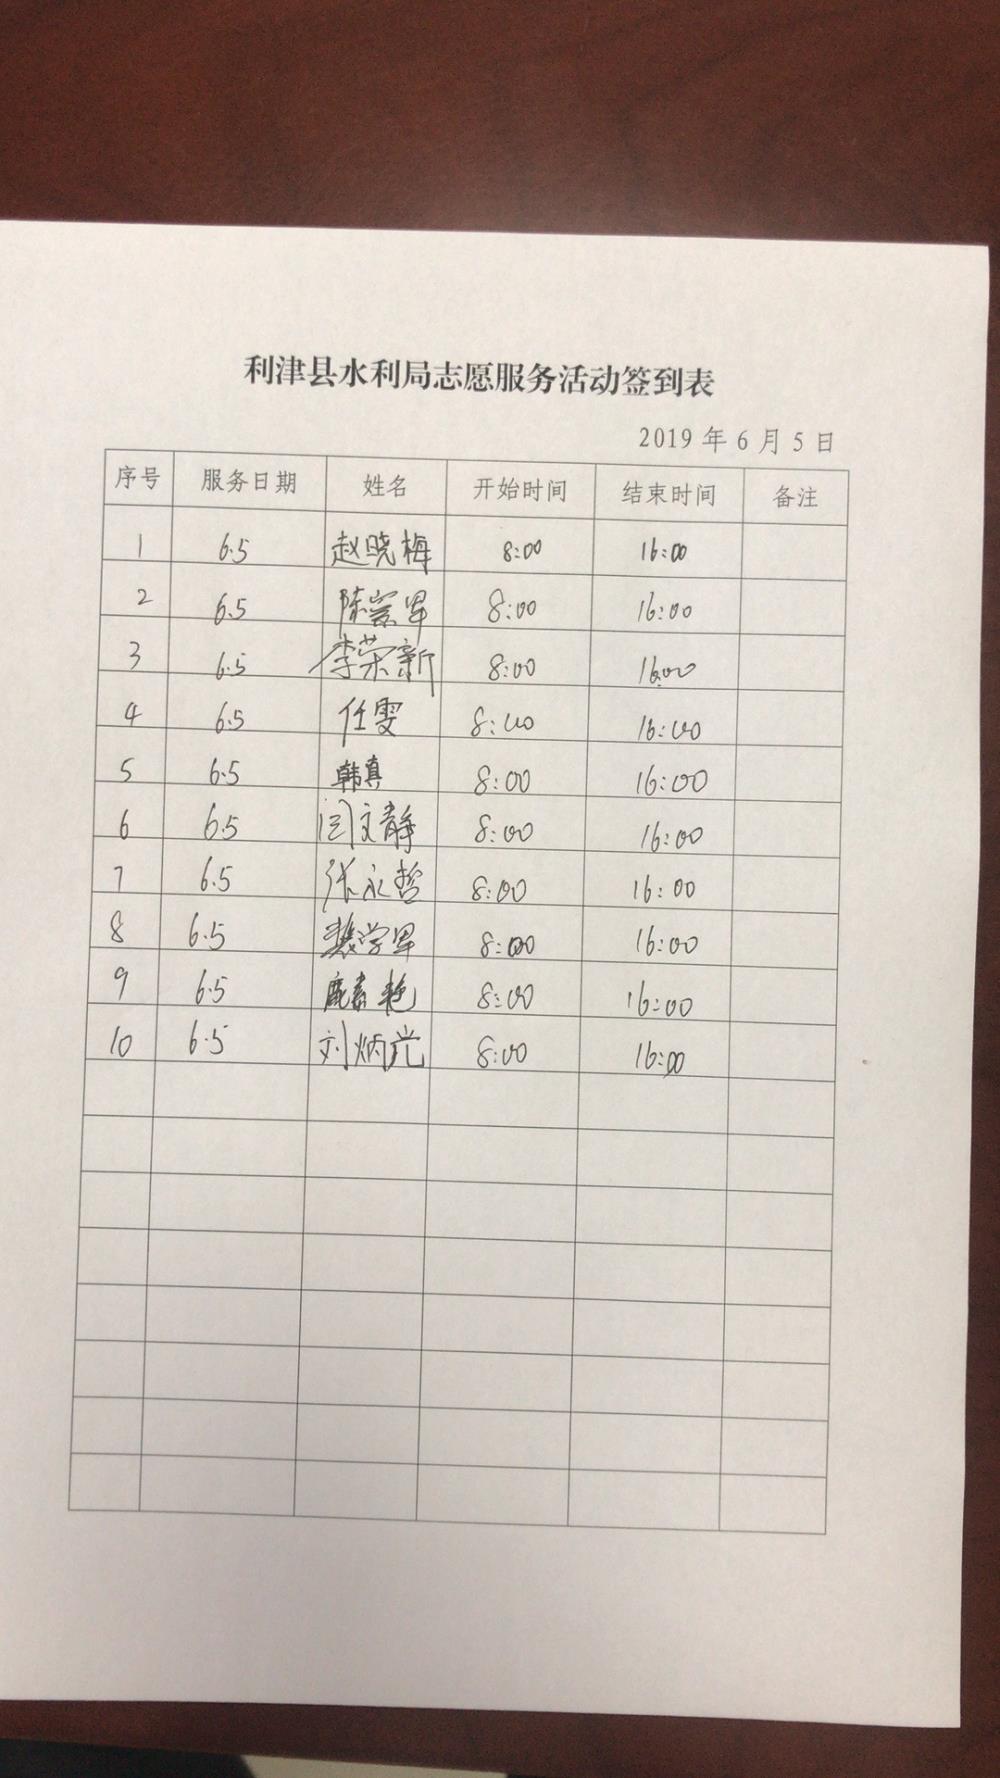 利津县水利局志愿服务活动签到表
2019 年 6 月 5 日
序号 服务日期 姓名 开始时间 结束时间 备注
1 6.5 赵晓梅 8:00 16:00
2 6.5 陈崇军 8:00 16:00
3 6.5 李荣新 8:00 16:00
4 6.5 任雯 8:00 16:00
5 6.5 韩真 8:00 16:00
6 6.5 闫文静 8:00 16:00
7 6.5 张永哲 8:00 16:00
8 6.5 裴学军 8:00 16:00
9 6.5 鹿素艳 8:00 16:00
10 6.5 刘炳光 8:00 16:00